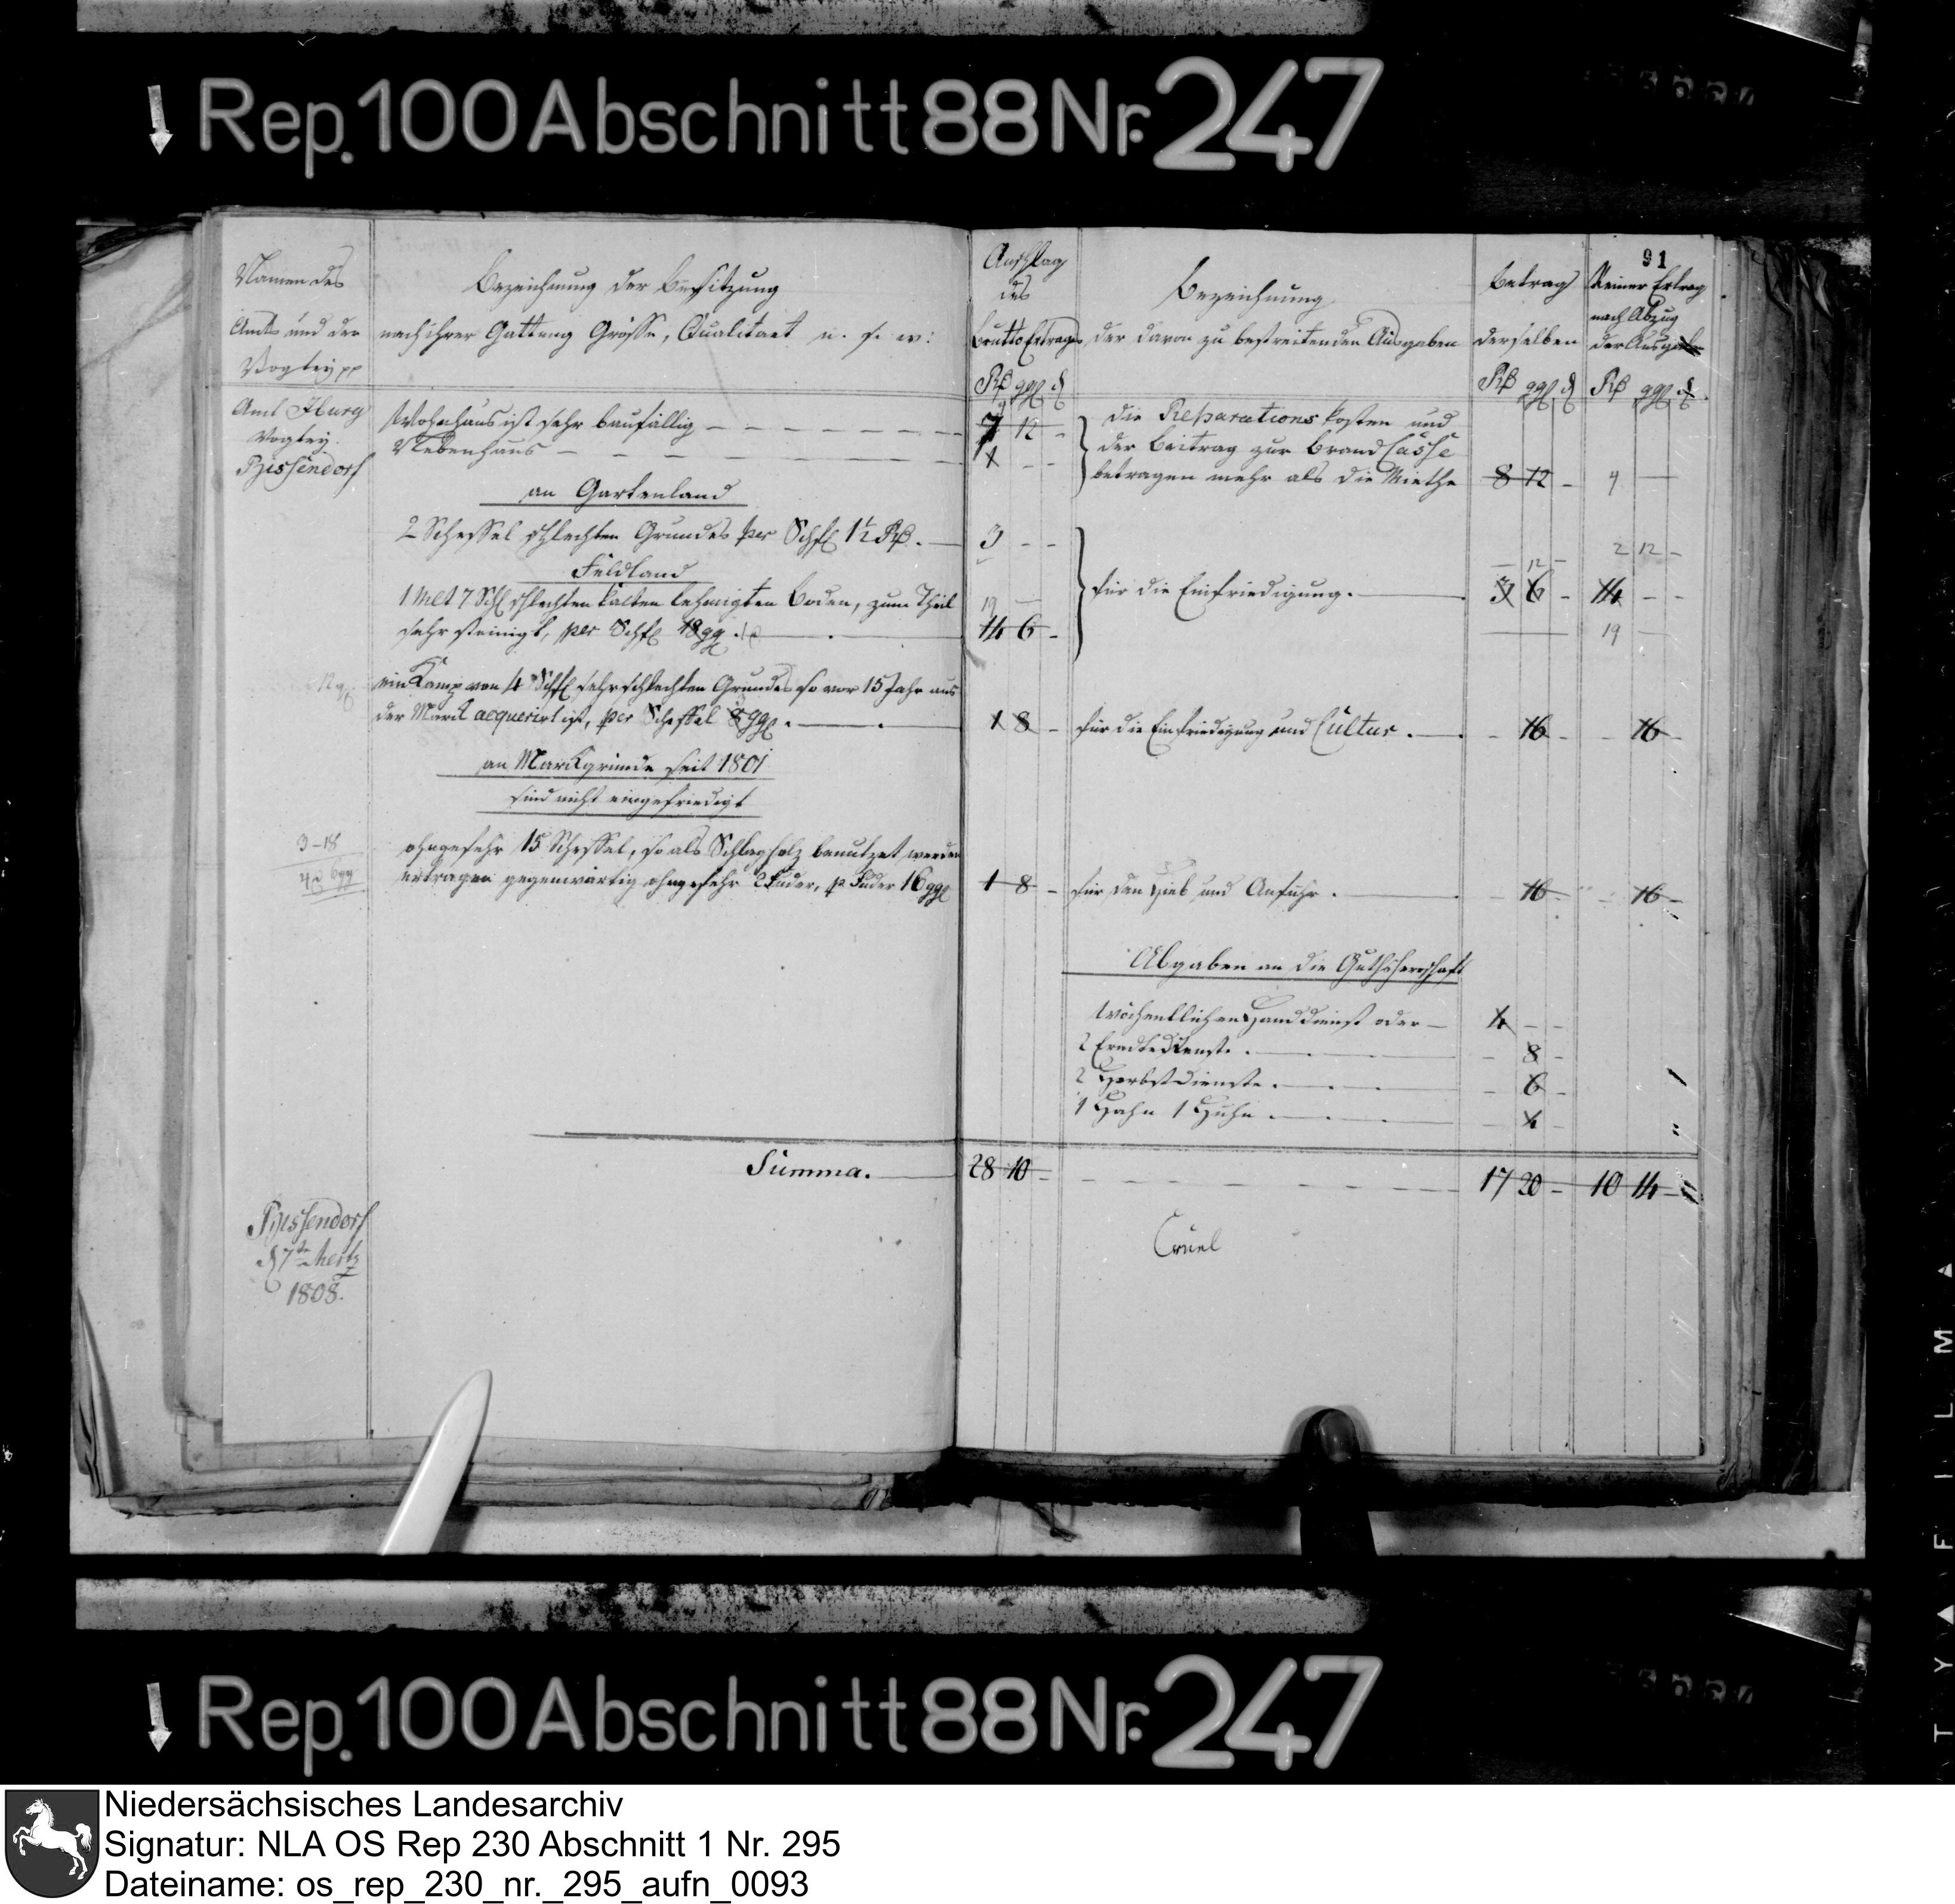 Rep. 100 Abschnitt 88 Nr. 247
91
Namen des
Amts und der
Vogtey pp
Bezeichnung der Besitzung
nach ihrer Gattung Grösse, Qualitaet u. s. w:
Anschlag
des
Brutto Ertrages
Bezeichnung
der davon zu bestreitenden Ausgaben
Betrag
derselben
Reiner Ertrag
nach Abzug
der Ausgabe
Amt Iburg
Vogtey
Bissendorf
Wohnhaus ist sehr baufällig
7 12 -
Nebenhaus
1 - -
die Reparations kosten und
der Beitrag zur Brand Casse
betragen mehr als die Miethe
8 12 -
4 —
an Gartenland
2 Scheffel schlechten Grundes per Schfl 1½ Rß.
3 - -
2 12 -
Feldland
1 Mlt 7 Schl schlechten kalten lehmigten Boden, zum Theil
sehr steinigt, per Schfl 18 gg.
19 —
14 6 -
für die Einfriedigung.
12 -
3 6 -
14 - -
19 —
ein Kamp von 4 Schfl sehr schlechten Grundes so vor 15 Jahr aus
der Marck acquerirt ist, per Scheffel 8 gg.
1 8 -
für die Einfriedigung und Cultur.
- 16 -
- 16 -
an Marckgrunde seit 1801
sind nicht eingefriedigt
3 - 18
6 gg
ohngefehr 15 Scheffel, so als Schlagholz benutzet werden
ertragen gegenwärtig ohngefehr 2 Fuder, p Fuder 16 gg
1 8 -
für den Hieb und Anfuhr.
- 16 -
- 16 -
Abgaben an die Guthsherrschaft
wöchentlichen Handdienst oder
4 - -
2 Erndtedienste.
- 8 -
2 Herbstdienste.
- 6 -
1 Hahn 1 Huhn.
- 4 -
Summa.
28 10 -
17 20 -
10 14 -
Bissendorf
1808.
Cruel
Rep. 100 Abschnitt 88 Nr. 247
Niedersächsisches Landesarchiv
Signatur: NLA OS Rep 230 Abschnitt 1 Nr. 295
Dateiname: os_rep_230_nr._295_aufn_0093